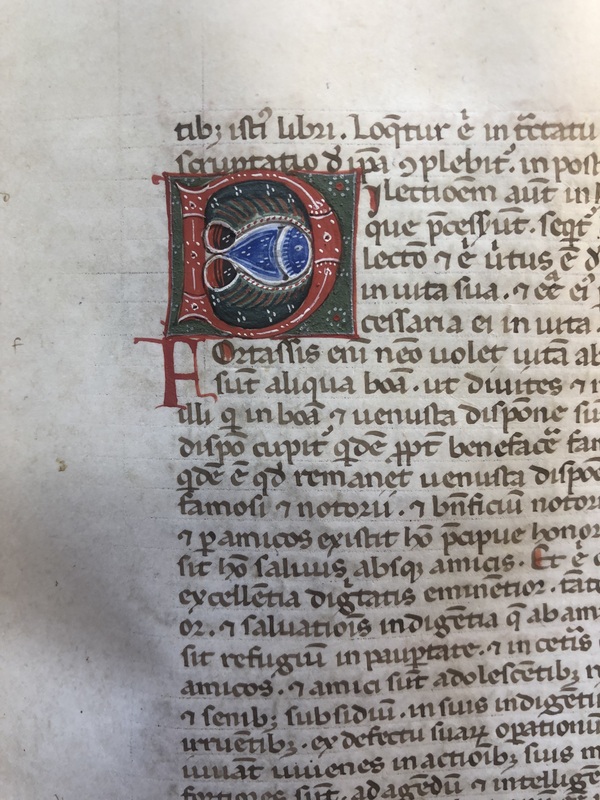 tibꝫ isti᾽ libri. Loq̄tur ē in tc̄tatu
scruptatio d̄ ip̄a ꝯplebit᾽. in post
Dilectioēm aūt in
que p̄cesſūt. seqt᷑
lectō ⁊ ē ūtus ē
in uita sua. ⁊ ēē ei
cessaria ei in uita.
FOrtassis eni nēo uolet uitā ab
sūt aliqua boā. ut diuites ⁊
illi q in boā ⁊ uenusta dispōne
dispō cupit᷑ qdē ꝓpt᷑ benefacē
qdē ē qd remanet uenusta dispōe
famosi ⁊ notorii. ⁊ bn̄ficiū notor
⁊ ꝑ amicos existit hō p̄cipue honor
sit hō saluus absqꝫ amicis. Et ē
excellētia dig̃tatis eminētior. tāte
or. ⁊ saluatiois indigētia q̄ ab am
sit refugiū in paupꝑtate. ⁊ in cetis
amicos. ⁊ amici sūt adolescētibꝫ
⁊ senibꝫ subsidiū. in suis indigētiis
irruētibꝫ. ex defectu suaꝝ oꝑationum
uiuāt uiuenes in actiōibꝫ suis
fortiores sūt. ad agēdū ⁊ intellig